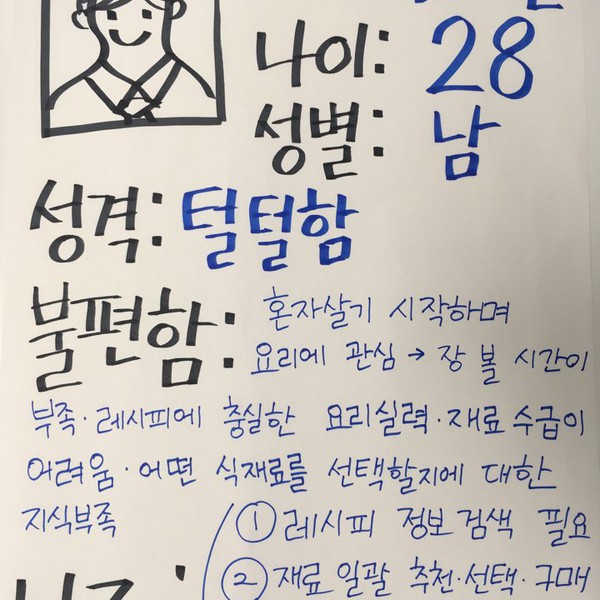 나이: 28
성별: 남
성격: 털털함
불편함: 혼자살기 시작하며
요리에 관심 → 장 볼 시간이
부족·레시피에 충실한 요리실력·재료수급이
어려움·어떤 식재료를 선택할지에 대한
지식부족
① 레시피 정보검색 필요
② 재료 일괄 추천·선택·구매